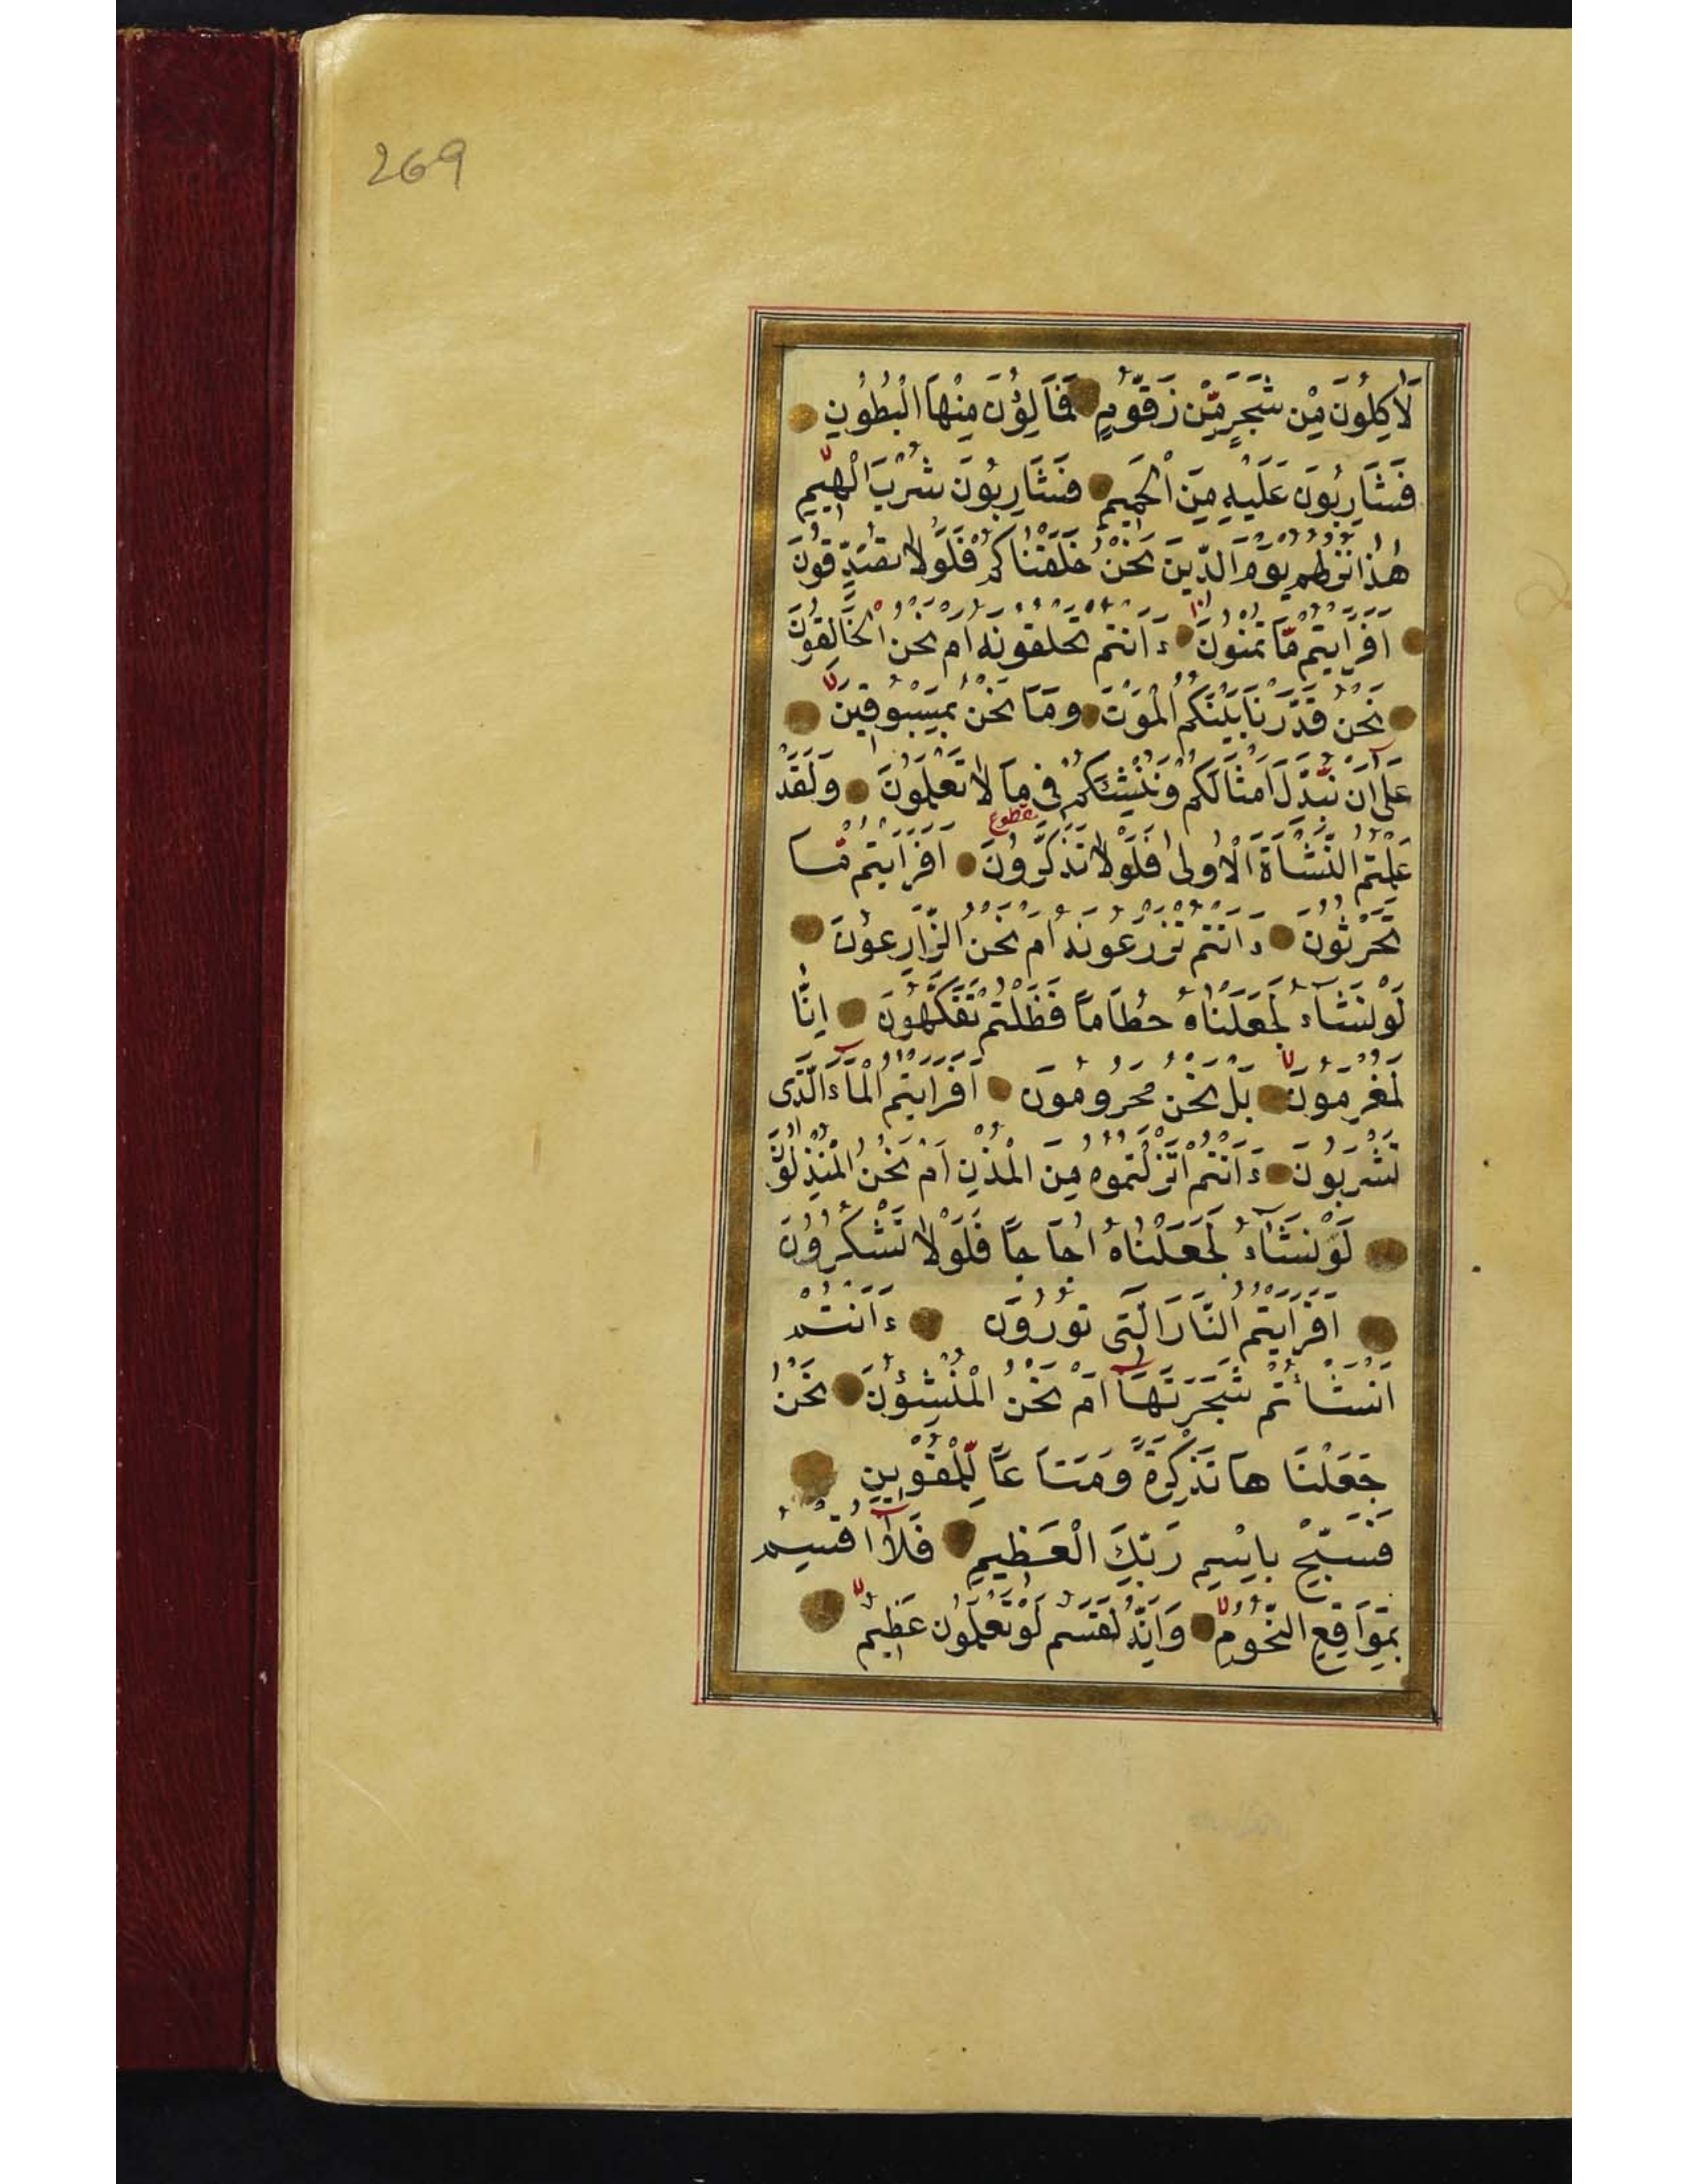 269
لَاٰكِلُونَ مِنْ شَجَرٍ مِّنْ زَقُّومٍ فَمَالِؤُنَ مِنْهَا الْبُطُونِ
فَشَارِبُونَ عَلَيْهِ مِنَ الْحَمِيمِ فَشَارِبُونَ شُرْبَ الْهِيمِ
هٰذَا نُزُلُهُمْ يَوْمَ الدِّينِ نَحْنُ خَلَقْنَاكُمْ فَلَوْلَا تُصَدِّقُونَ
اَفَرَاَيْتُمْ مَّا تُمْنُونَ ءَاَنْتُمْ تَخْلُقُونَهُ اَمْ نَحْنُ الْخَالِقُونَ
نَحْنُ قَدَّرْنَا بَيْنَكُمُ الْمَوْتَ وَمَا نَحْنُ بِمَسْبُوقِينَ
عَلٰٓى اَنْ نُبَدِّلَ اَمْثَالَكُمْ وَنُنْشِئَكُمْ فِى مَا لَا تَعْلَمُونَ وَلَقَدْ
مقطوع
عَلِمْتُمُ النَّشْاَةَ الْاُولٰى فَلَوْلَا تَذَكَّرُونَ اَفَرَاَيْتُمْ مَّا
تَحْرُثُونَ ءَاَنْتُمْ تَزْرَعُونَهُ اَمْ نَحْنُ الزَّارِعُونَ
لَوْ نَشَآءُ لَجَعَلْنَاهُ حُطَامًا فَظَلْتُمْ تَفَكَّهُونَ اِنَّا
لَمُغْرَمُونَ بَلْ نَحْنُ مَحْرُومُونَ اَفَرَاَيْتُمُ الْمَآءَ الَّذِى
تَشْرَبُونَ ءَاَنْتُمْ اَنْزَلْتُمُوهُ مِنَ الْمُزْنِ اَمْ نَحْنُ الْمُنْزِلُونَ
لَوْ نَشَآءُ لَجَعَلْنَاهُ اُجَاجًا فَلَوْلَا تَشْكُرُونَ
اَفَرَاَيْتُمُ النَّارَ الَّتِى تُورُونَ ءَاَنْتُمْ
اَنْشَاْتُمْ شَجَرَتَهَآ اَمْ نَحْنُ الْمُنْشِؤُنَ نَحْنُ
جَعَلْنَاهَا تَذْكِرَةً وَمَتَاعًا لِّلْمُقْوِينَ
فَسَبِّحْ بِاسْمِ رَبِّكَ الْعَظِيمِ فَلَآ اُقْسِمُ
بِمَوَاقِعِ النُّجُومِ وَاِنَّهُ لَقَسَمٌ لَوْ تَعْلَمُونَ عَظِيمٌ